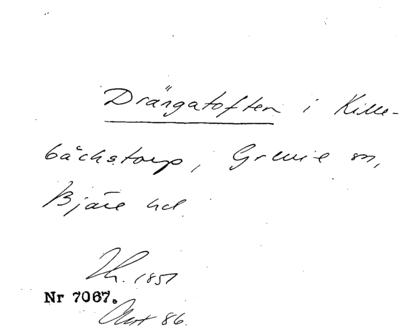 Drängatoften i Kille-
bäckstorp, Grevie sn,
Bjäre hd.
1851
Nr 7067.
86.